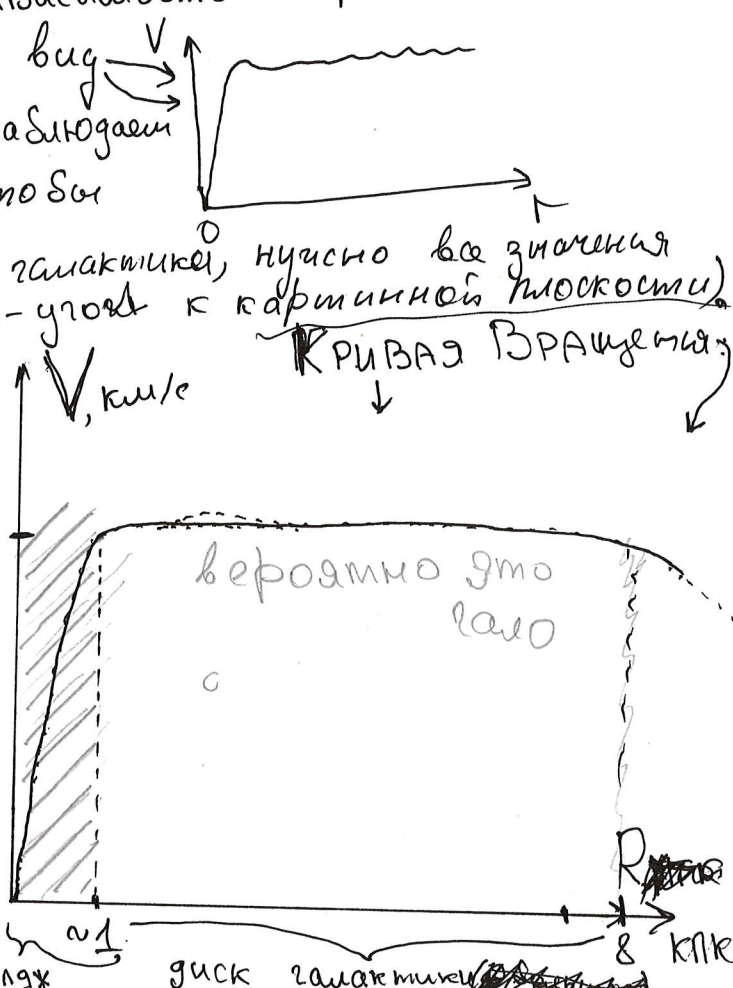 вид V
аблюдаем
тобы
0 r
галактики, нужно все значения
- угол к картинной плоскости).
КРИВАЯ ВРАЩЕНИЯ:
V, км/с
вероятно это
гало
R
~1 8 кпк
лдж диск галактики